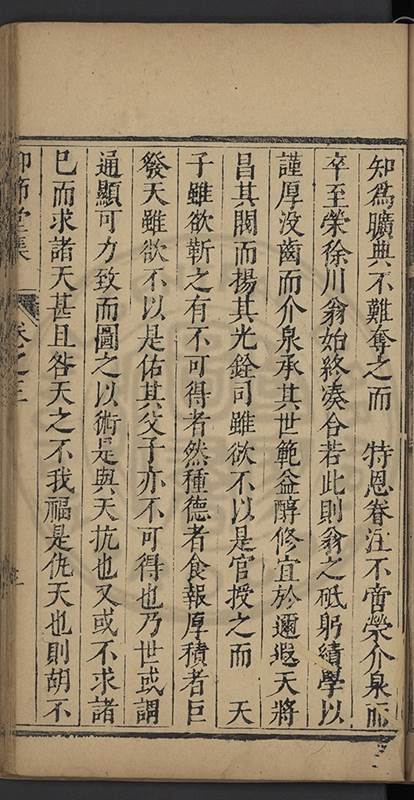 知爲曠典不難奪之而　特恩眷注不啻榮介泉而
卒至榮徐川翁始終湊合若此則翁之砥躬績學以
謹厚没齒而介泉承其世範益醇修宜於邇遐天將
昌其閥而揚其光銓司雖欲不以是官授之而　天
子雖欲靳之有不可得者然種德者食報厚積者巨
發天雖欲不以是佑其父子亦不可得也乃世或謂
通顯可力致而圖之以術是與天抗也又或不求諸
已而求諸天甚且咎天之不我福是仇天也則胡不
仰節堂集　卷之三